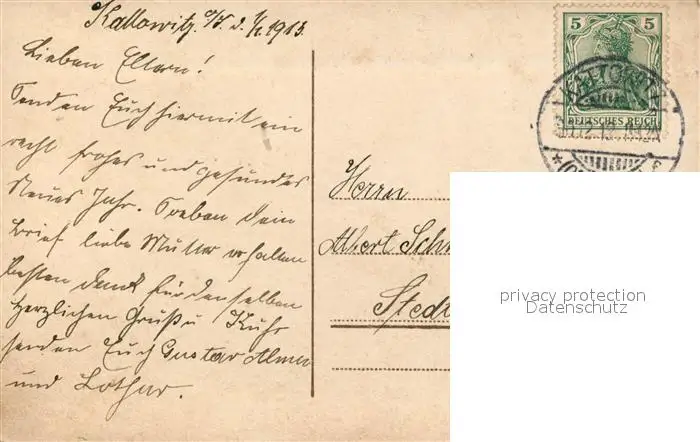 Kattowitz O/S. d. 1/1. 1913.
Lieben Eltern!
Senden Euch hiermit ein
recht frohes und gesundes
Neues Jahr. Soeben dein
Brief liebe Mutter erhalten
besten Dank für denselben
Herzlichen Gruß u Kuß
senden Euch Gustav
und Lothar.
5 5
DEUTSCHES REICH
KATTOWITZ
Herrn
Albert Sch
Stedt
privacy protection
Datenschutz